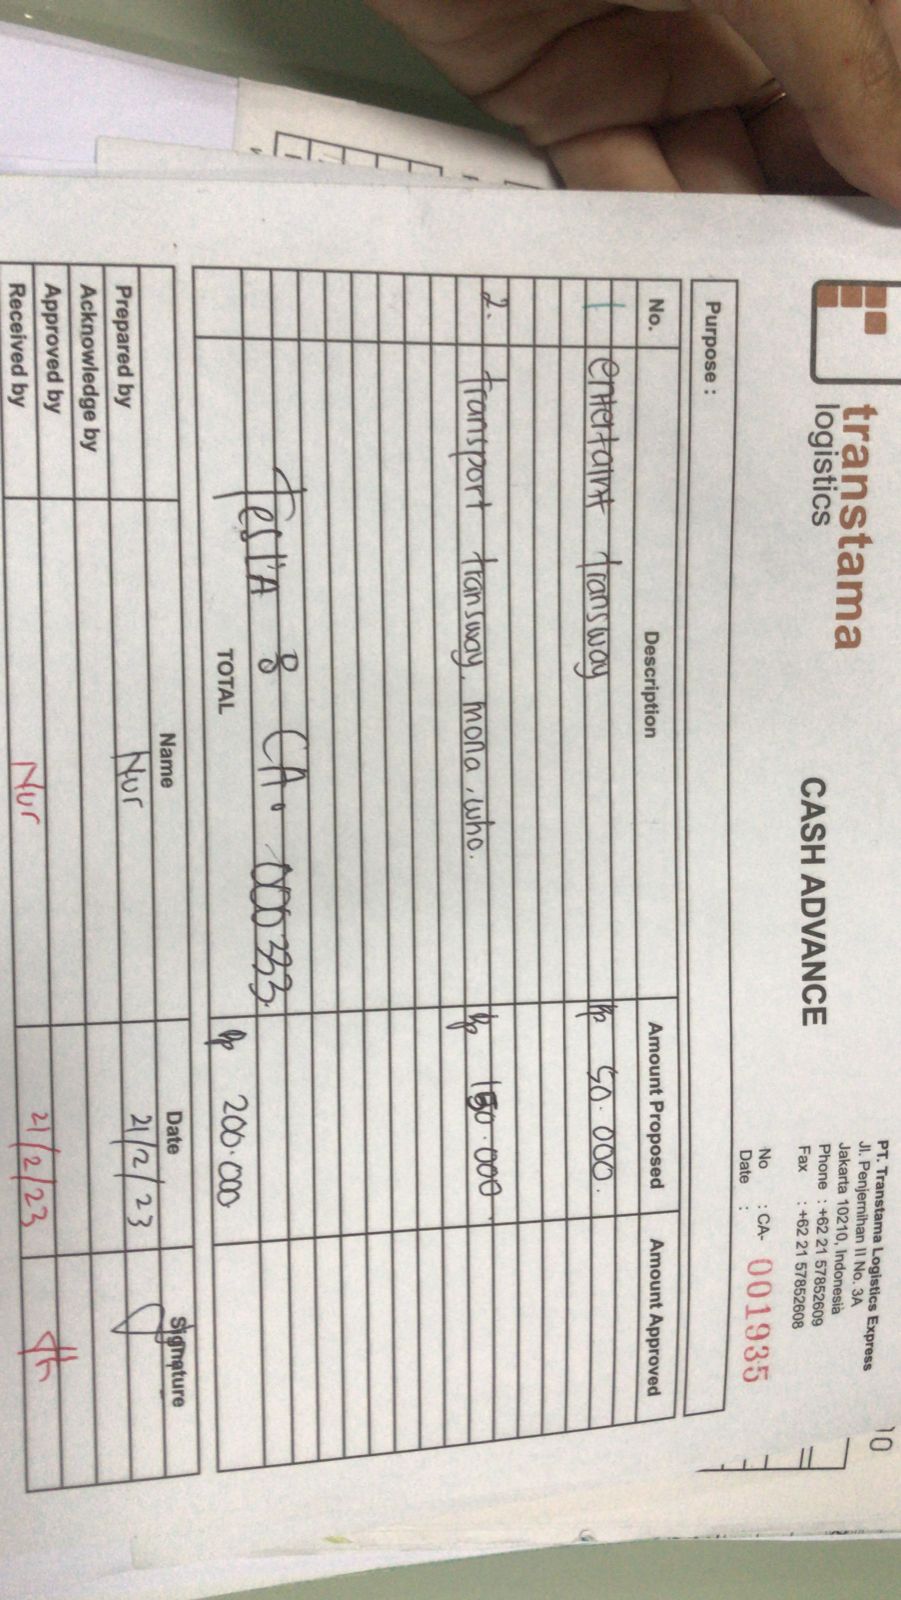 transtama
logistics
CASH ADVANCE
PT. Transtama Logistics Express
Jl. Penjernihan II No. 3A
Jakarta 10210, Indonesia
Phone : +62 21 57852609
Fax : +62 21 57852608
No : CA- 001935
Date :
Purpose :
No. Description Amount Proposed Amount Approved
1 entertaint transway Rp 50.000.
2. transport transway. mona, who. Rp 150.000
: CA. 000333.
TOTAL Rp 200.000
Name Date Signature
Prepared by Nur 21/2/23
Acknowledge by
Approved by
Received by Nur 21/2/23
10